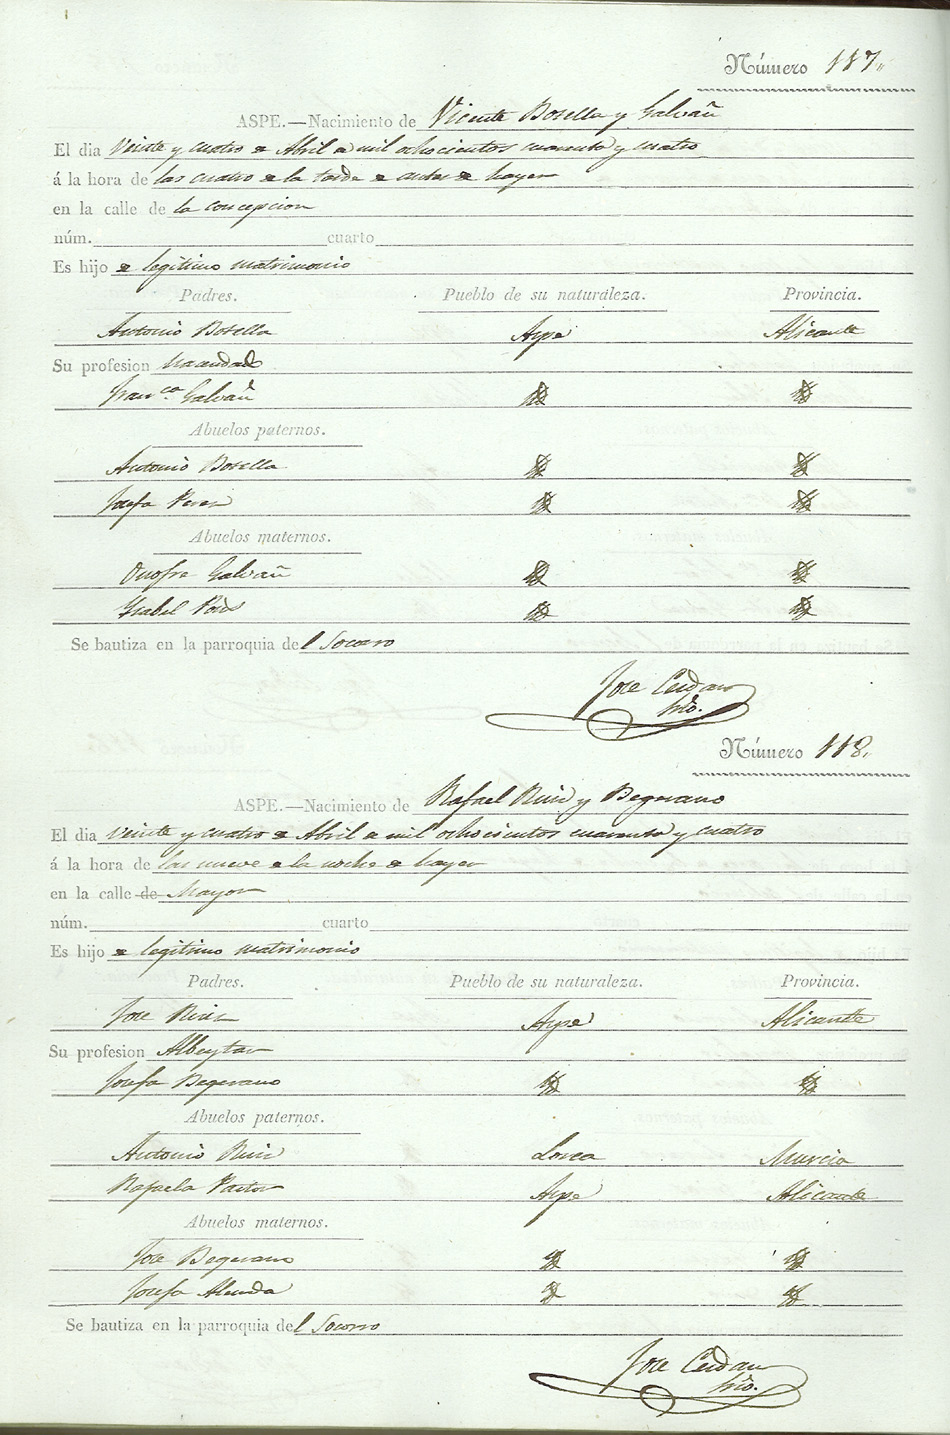 Número 117.
ASPE.—Nacimiento de Vicente Botella y Galvañ
El dia Veinte y cuatro de Abril de mil ochocientos cuarenta y cuatro
á la hora de las cuatro de la tarde de antes de hayer
en la calle de la concepcion
núm. cuarto
Es hijo de legitimo matrimonio
Padres. Pueblo de su naturaleza. Provincia.
Antonio Botella Aspe Alicante
Su profesion Hacendado
Franca. Galvañ
Abuelos paternos.
Antonio Botella
Josefa Perez
Abuelos maternos.
Onofre Galvañ
Ysabel Pons
Se bautiza en la parroquia del Socorro
Jose Cerdan
Número 118.
ASPE.—Nacimiento de Rafael Ruiz y Begerano
El dia veinte y cuatro de Abril de mil ochocientos cuarenta y cuatro
á la hora de las nueve de la noche de hayer
en la calle de Mayor
núm. cuarto
Es hijo de legitimo matrimonio
Padres. Pueblo de su naturaleza. Provincia.
Jose Ruiz Aspe Alicante
Su profesion Albeytar
Josefa Begerano
Abuelos paternos.
Antonio Ruiz Lorca Murcia
Rafaela Pastor Aspe Alicante
Abuelos maternos.
Jose Begerano
Josefa Almida
Se bautiza en la parroquia del Socorro
Jose Cerdan